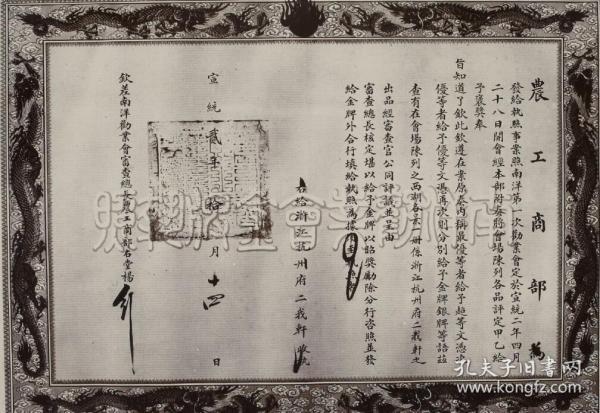 農工商部為
發給執照事業照南洋第一次勸業會定於宣統二年四月
二十八日開會經本部附奏將會場陳列各品評定甲乙給
予褒獎奉
旨知道了欽此欽遵在案原奏內稱最優等者給予超等文憑
優等者給予優等文憑再次則分別給予金牌銀牌等語茲
查有在會場陳列之西湖各景一冊係浙江杭州府二我軒之
出品經審查官公同評議並呈由
審查總長核定堪以給予金牌以詔獎勵除分行咨照並發
給金牌外合行填給執照為據
右給浙江杭州府二我軒
宣統貳年拾月十四日
欽差南洋勸業會審查總長農工商部右堂楊
孔夫子旧书网
www.kongfz.com